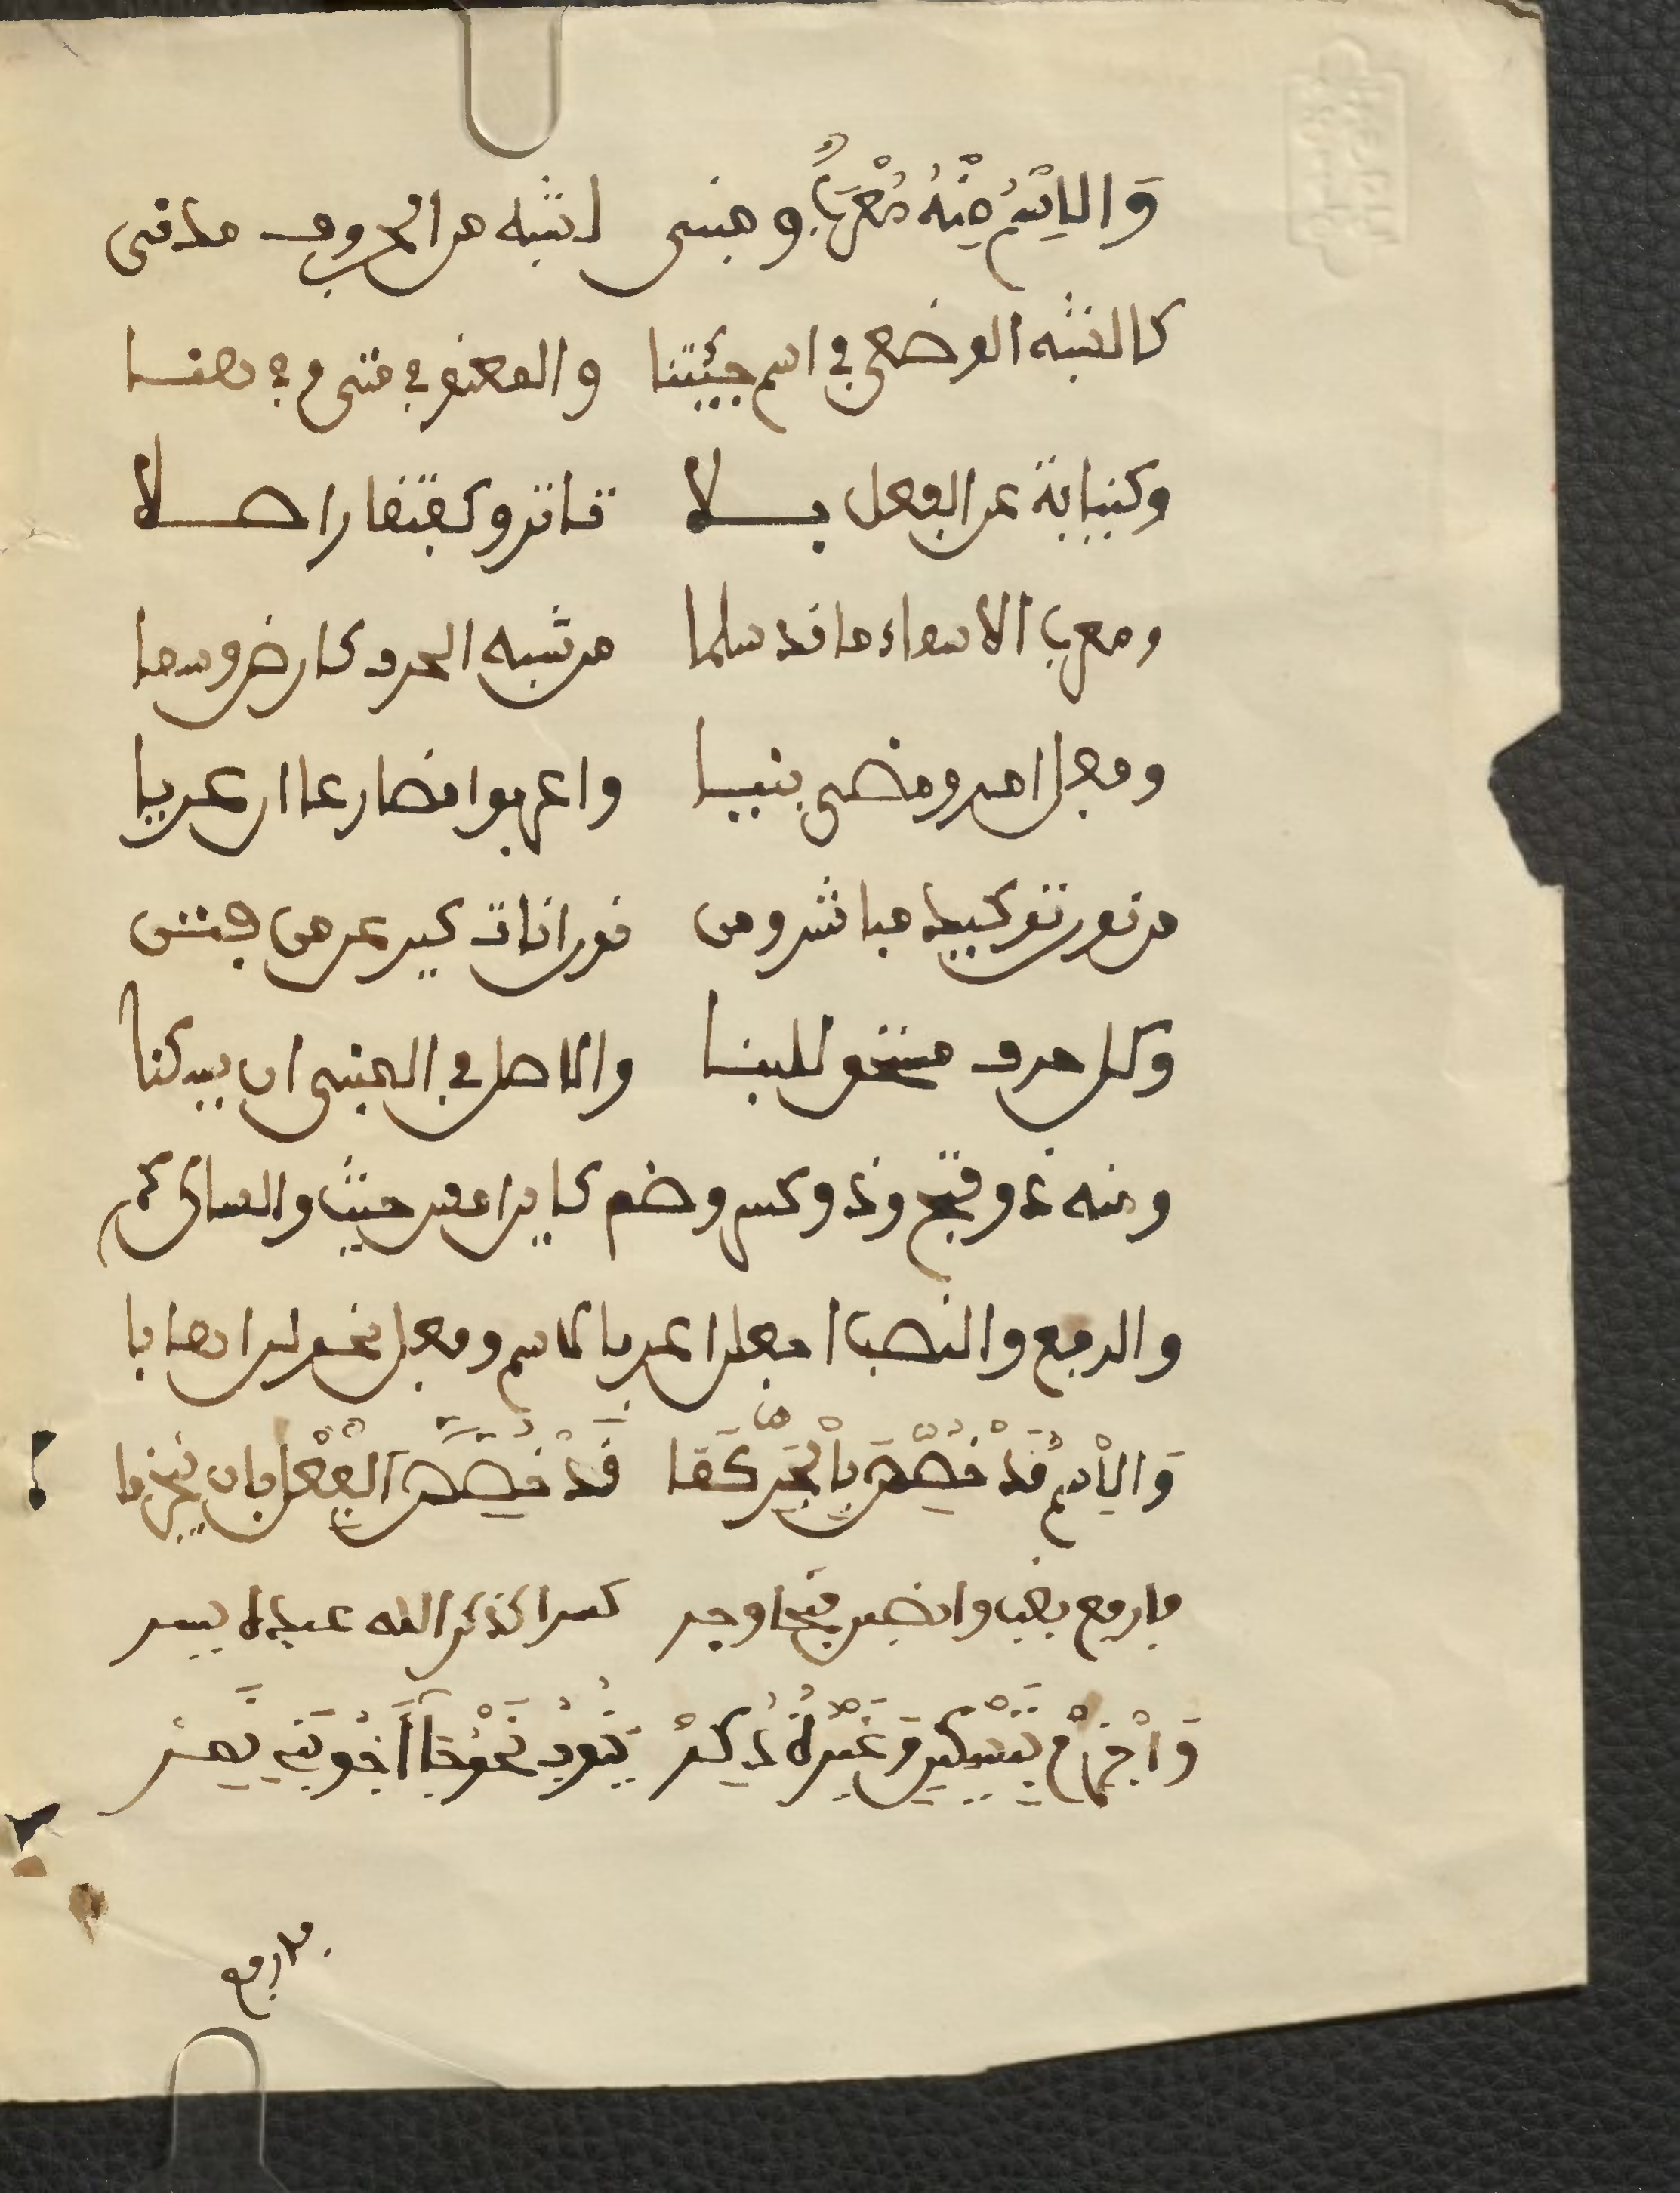 وَالاِسْمُ مِنْهُ مُعْرَبٌ ومبنى لشبه من الحروف مدنى
كالشبه الوضعي في اسم جئتنا والمعنو في متى و في هنا
وكنيابة عن الفعل بلا تاثر وكافتقار اصلا
ومعرب الاسماء ما قد سلما من شبه الحرف كارض وسما
وفعل امر ومضي بنيا واعربوا مضارعا ان عريا
من نون توكيد مباشر ومن نون اناث كيرعن من فتن
وكل حرف مستحق للبنا والاصل في المبنى ان يسكنا
ومنه ذو فتح وذو كسر وضم كاين امس حيث والساكن كم
والرفع والنصب اجعلن اعرابا لاسم وفعل نحو لن اهابا
وَالاِسْمُ قَدْ خُصِّصَ بِالْجَرِّ كَمَا قَدْ خُصِّصَ الْفِعْلُ بان ينجزما
فارفع بضم وانصبن فتحا وجر كسرا كذكر الله عبده يسر
وَاجْزِمْ بِتَسْكِينٍ وَغَيْرُ مَا ذُكِرْ يَنُوبُ نَحْوُ جَا أَخُو بَنِي نَمِرْ
فارفع